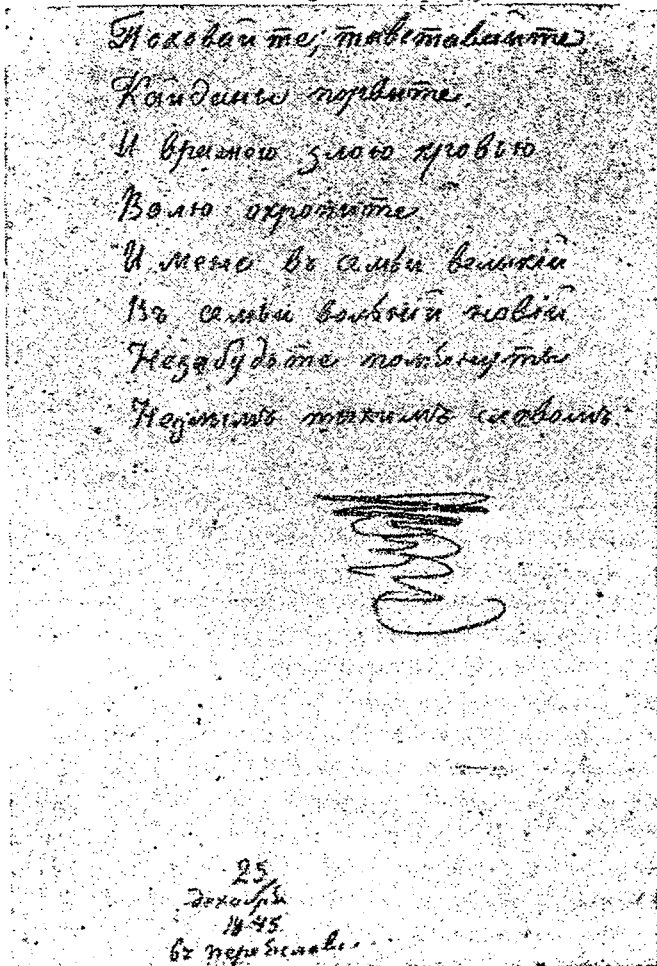 Поховайте; тавставайте
Кайданы порвите.
И вражою злою кровью
Волю окропите
И мене въ симъи великій
Въ семъи вольній новій
Незабудьте помъянуты
Незлымъ тыхимъ словомъ.
25
декабря
1845
въ Переяславе